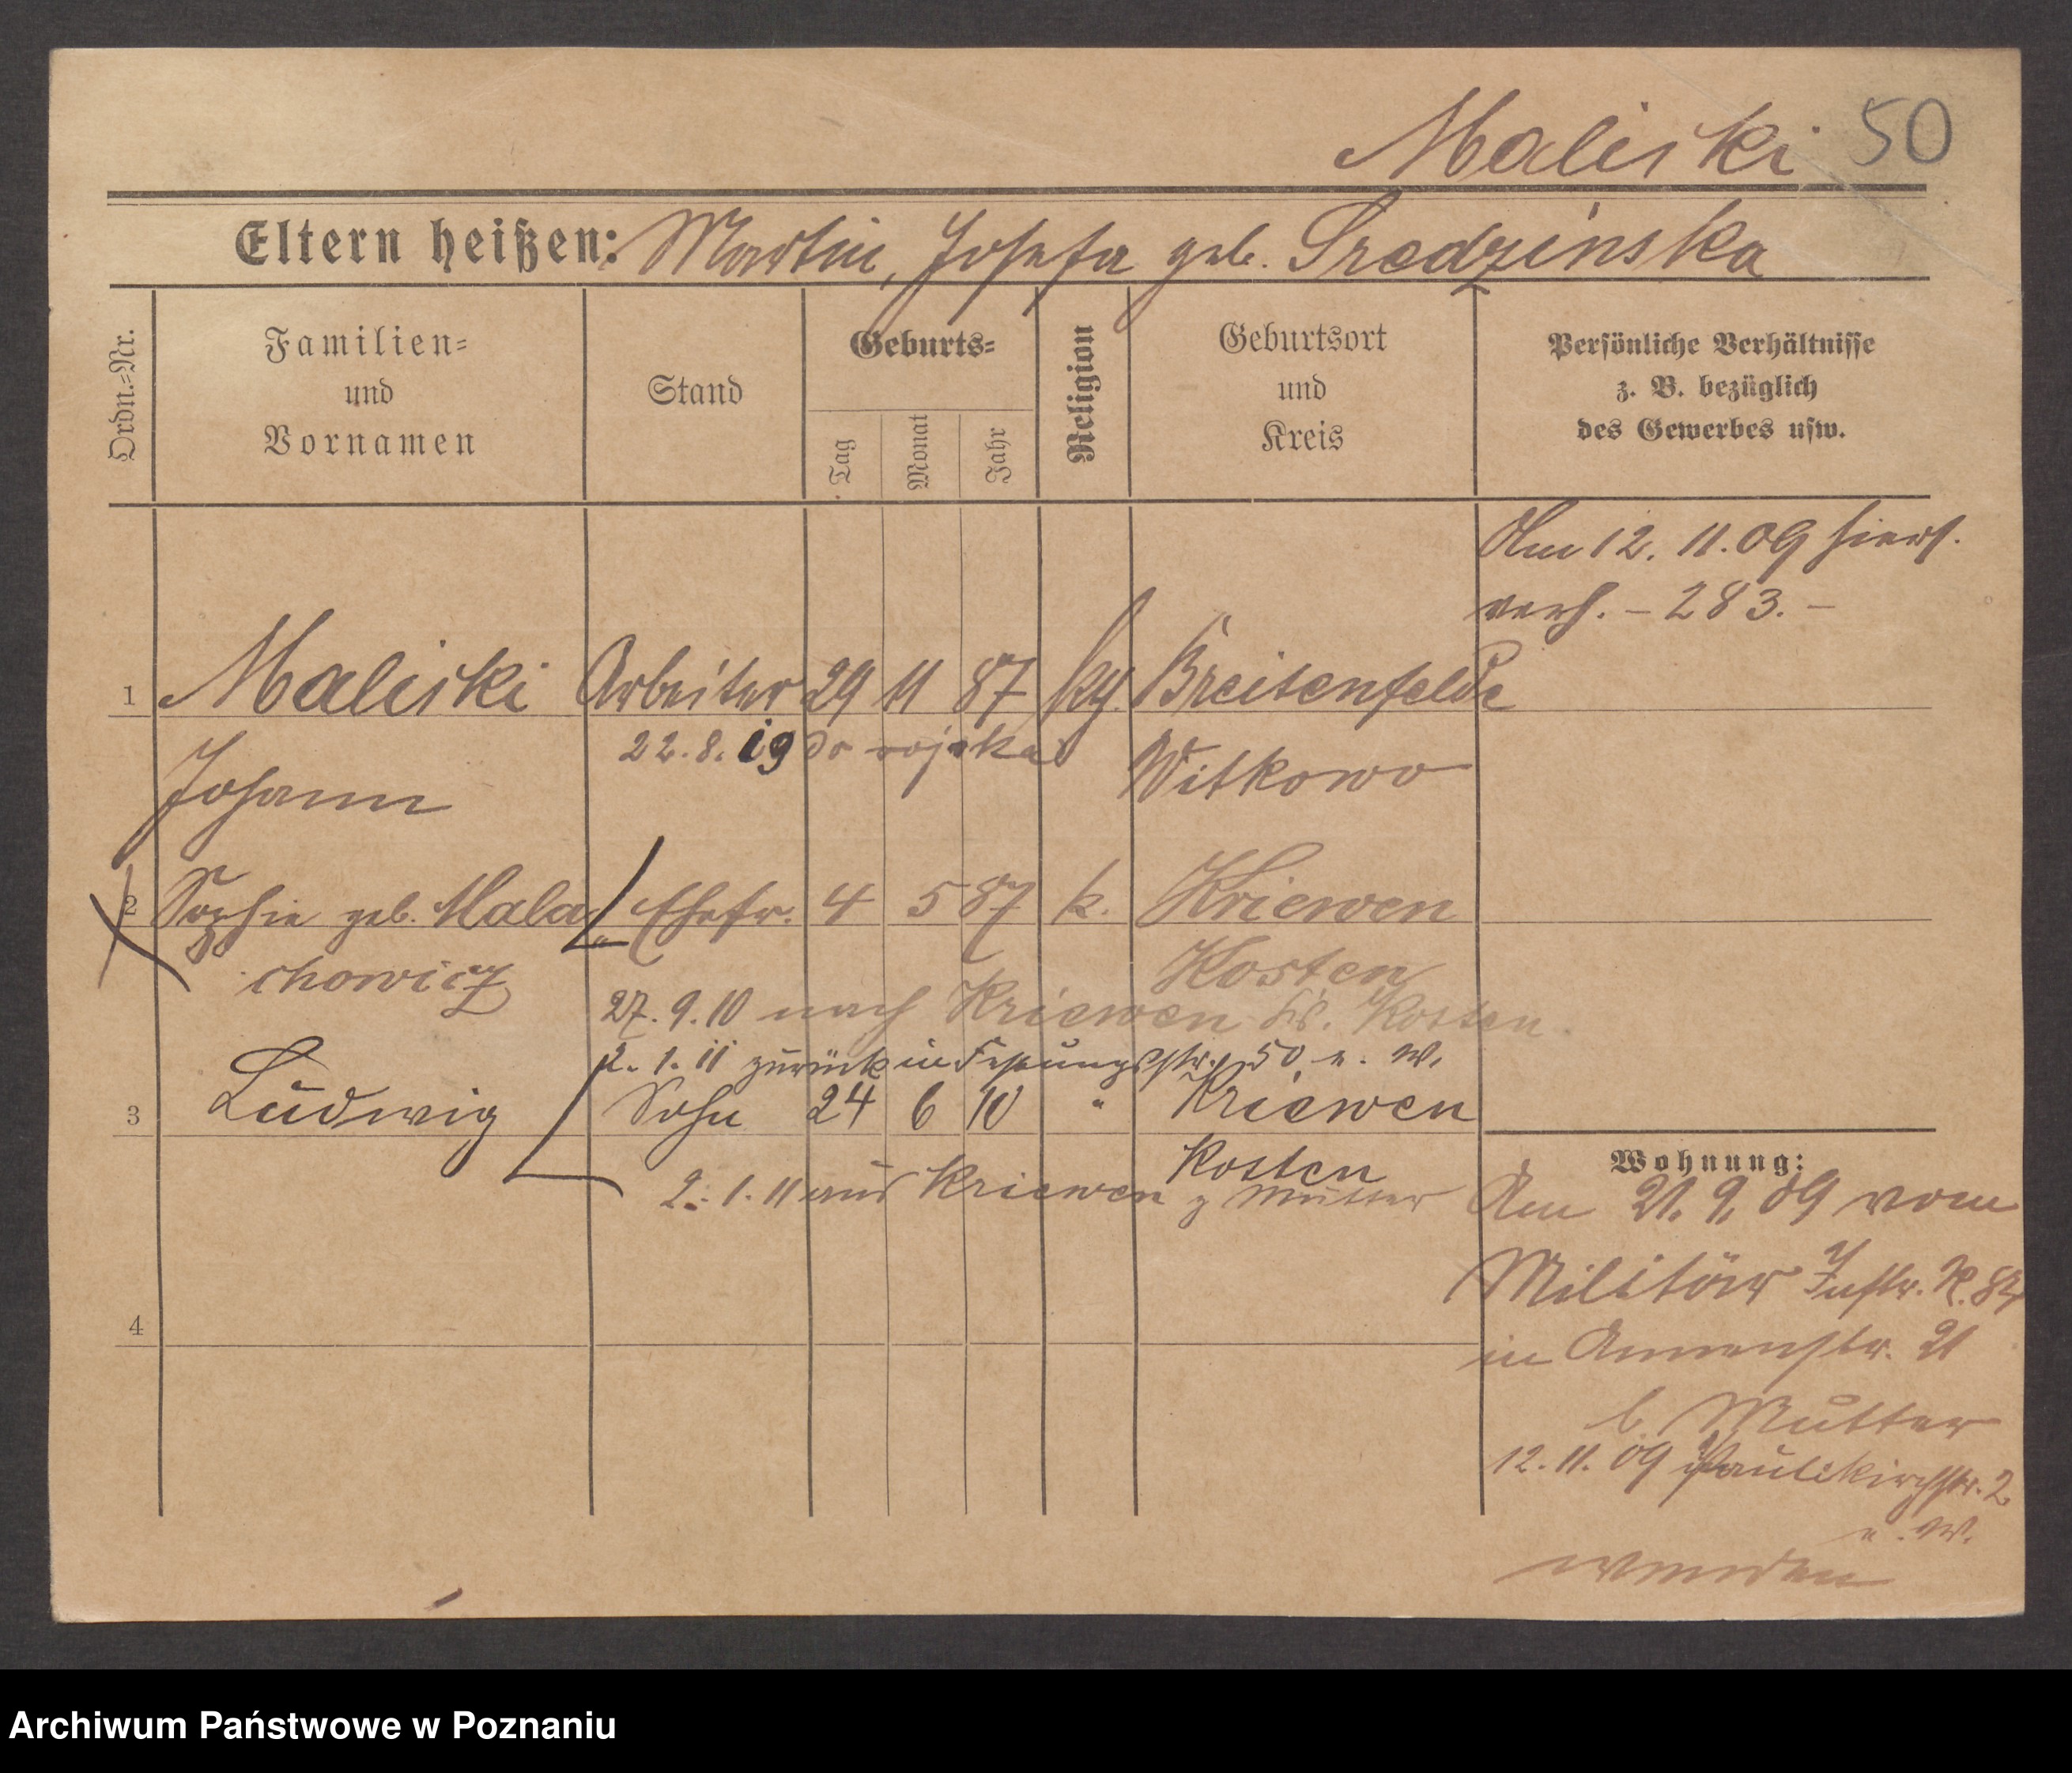 Maliski 50
Eltern heißen: Martin, Josefa geb. Sredzinska
Ordn.=Nr.
Familien=
und
Vornamen
Stand
Geburts=
Tag
Monat
Jahr
Religion
Geburtsort
und
Kreis
Persönliche Verhältnisse
z. B. bezüglich
des Gewerbes usw.
Am 12. 11. 09 hiers.
verh. – 283. –
1 Maliski Arbeiter 29 11 87 kg. Breitenfelde
22.8.19 do wojska
Johann Witkowo
2 Sophie geb. Mala Ehefr. 4 5 87 k. Kriewen
chowicz Kosten
27. 9. 10 nach Kriewen Kr. Kosten.
2. 1. 11 zurück in Festungsstr. 50, u. W.
3 Ludwig Sohn 24 6 10 " Kriewen
Kosten
2. 1. 11 aus Kriewen z Mutter
4
Wohnung:
Am 21. 9. 09 vom
Militär Inftr. R. 84
in Annenstr. 21
b. Mutter
12. 11. 09 Paulikirchstr. 2
u. W.
wenden
Archiwum Państwowe w Poznaniu